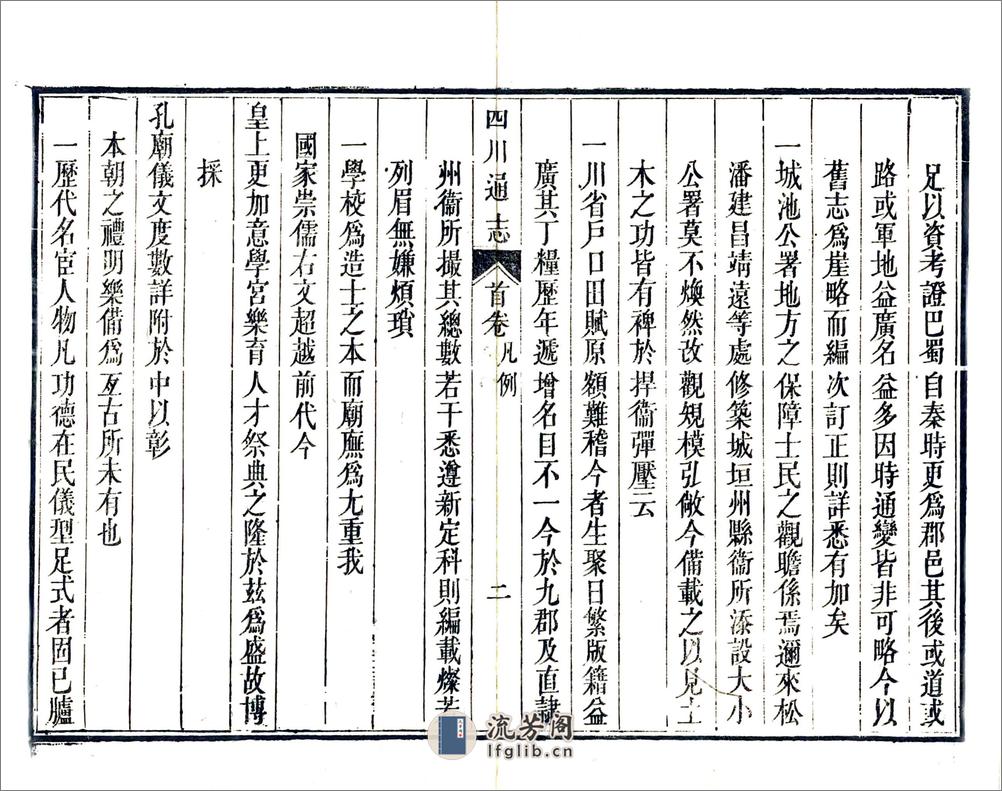 足以資考證巴蜀自秦時更爲郡邑其後或道或
路或軍地益廣名益多因時通變皆非可略今以
舊志爲崖略而編次訂正則詳悉有加矣
一城池公署地方之保障士民之觀瞻係焉邇來松
潘建昌靖遠等處修築城垣州縣衞所添設大小
公署莫不煥然改觀規模弘敞今備載之以見土
木之功皆有裨於捍衞彈壓云
一川省戶口田賦原額難稽今者生聚日繁版籍益
廣其丁糧歷年遞增名目不一今於九郡及直隸
四川通志 首卷 凡例 二
州衞所撮其總數若干悉遵新定科則編載燦若
列眉無嫌煩瑣
一學校爲造士之本而廟廡爲尢重我
國家崇儒右文超越前代今
皇上更加意學宮樂育人才祭典之隆於茲爲盛故博
採
孔廟儀文度數詳附於中以彰
本朝之禮明樂備爲亙古所未有也
一歷代名宦人物凡功德在民儀型足式者固已臚
流芳阁
lfglib.cn